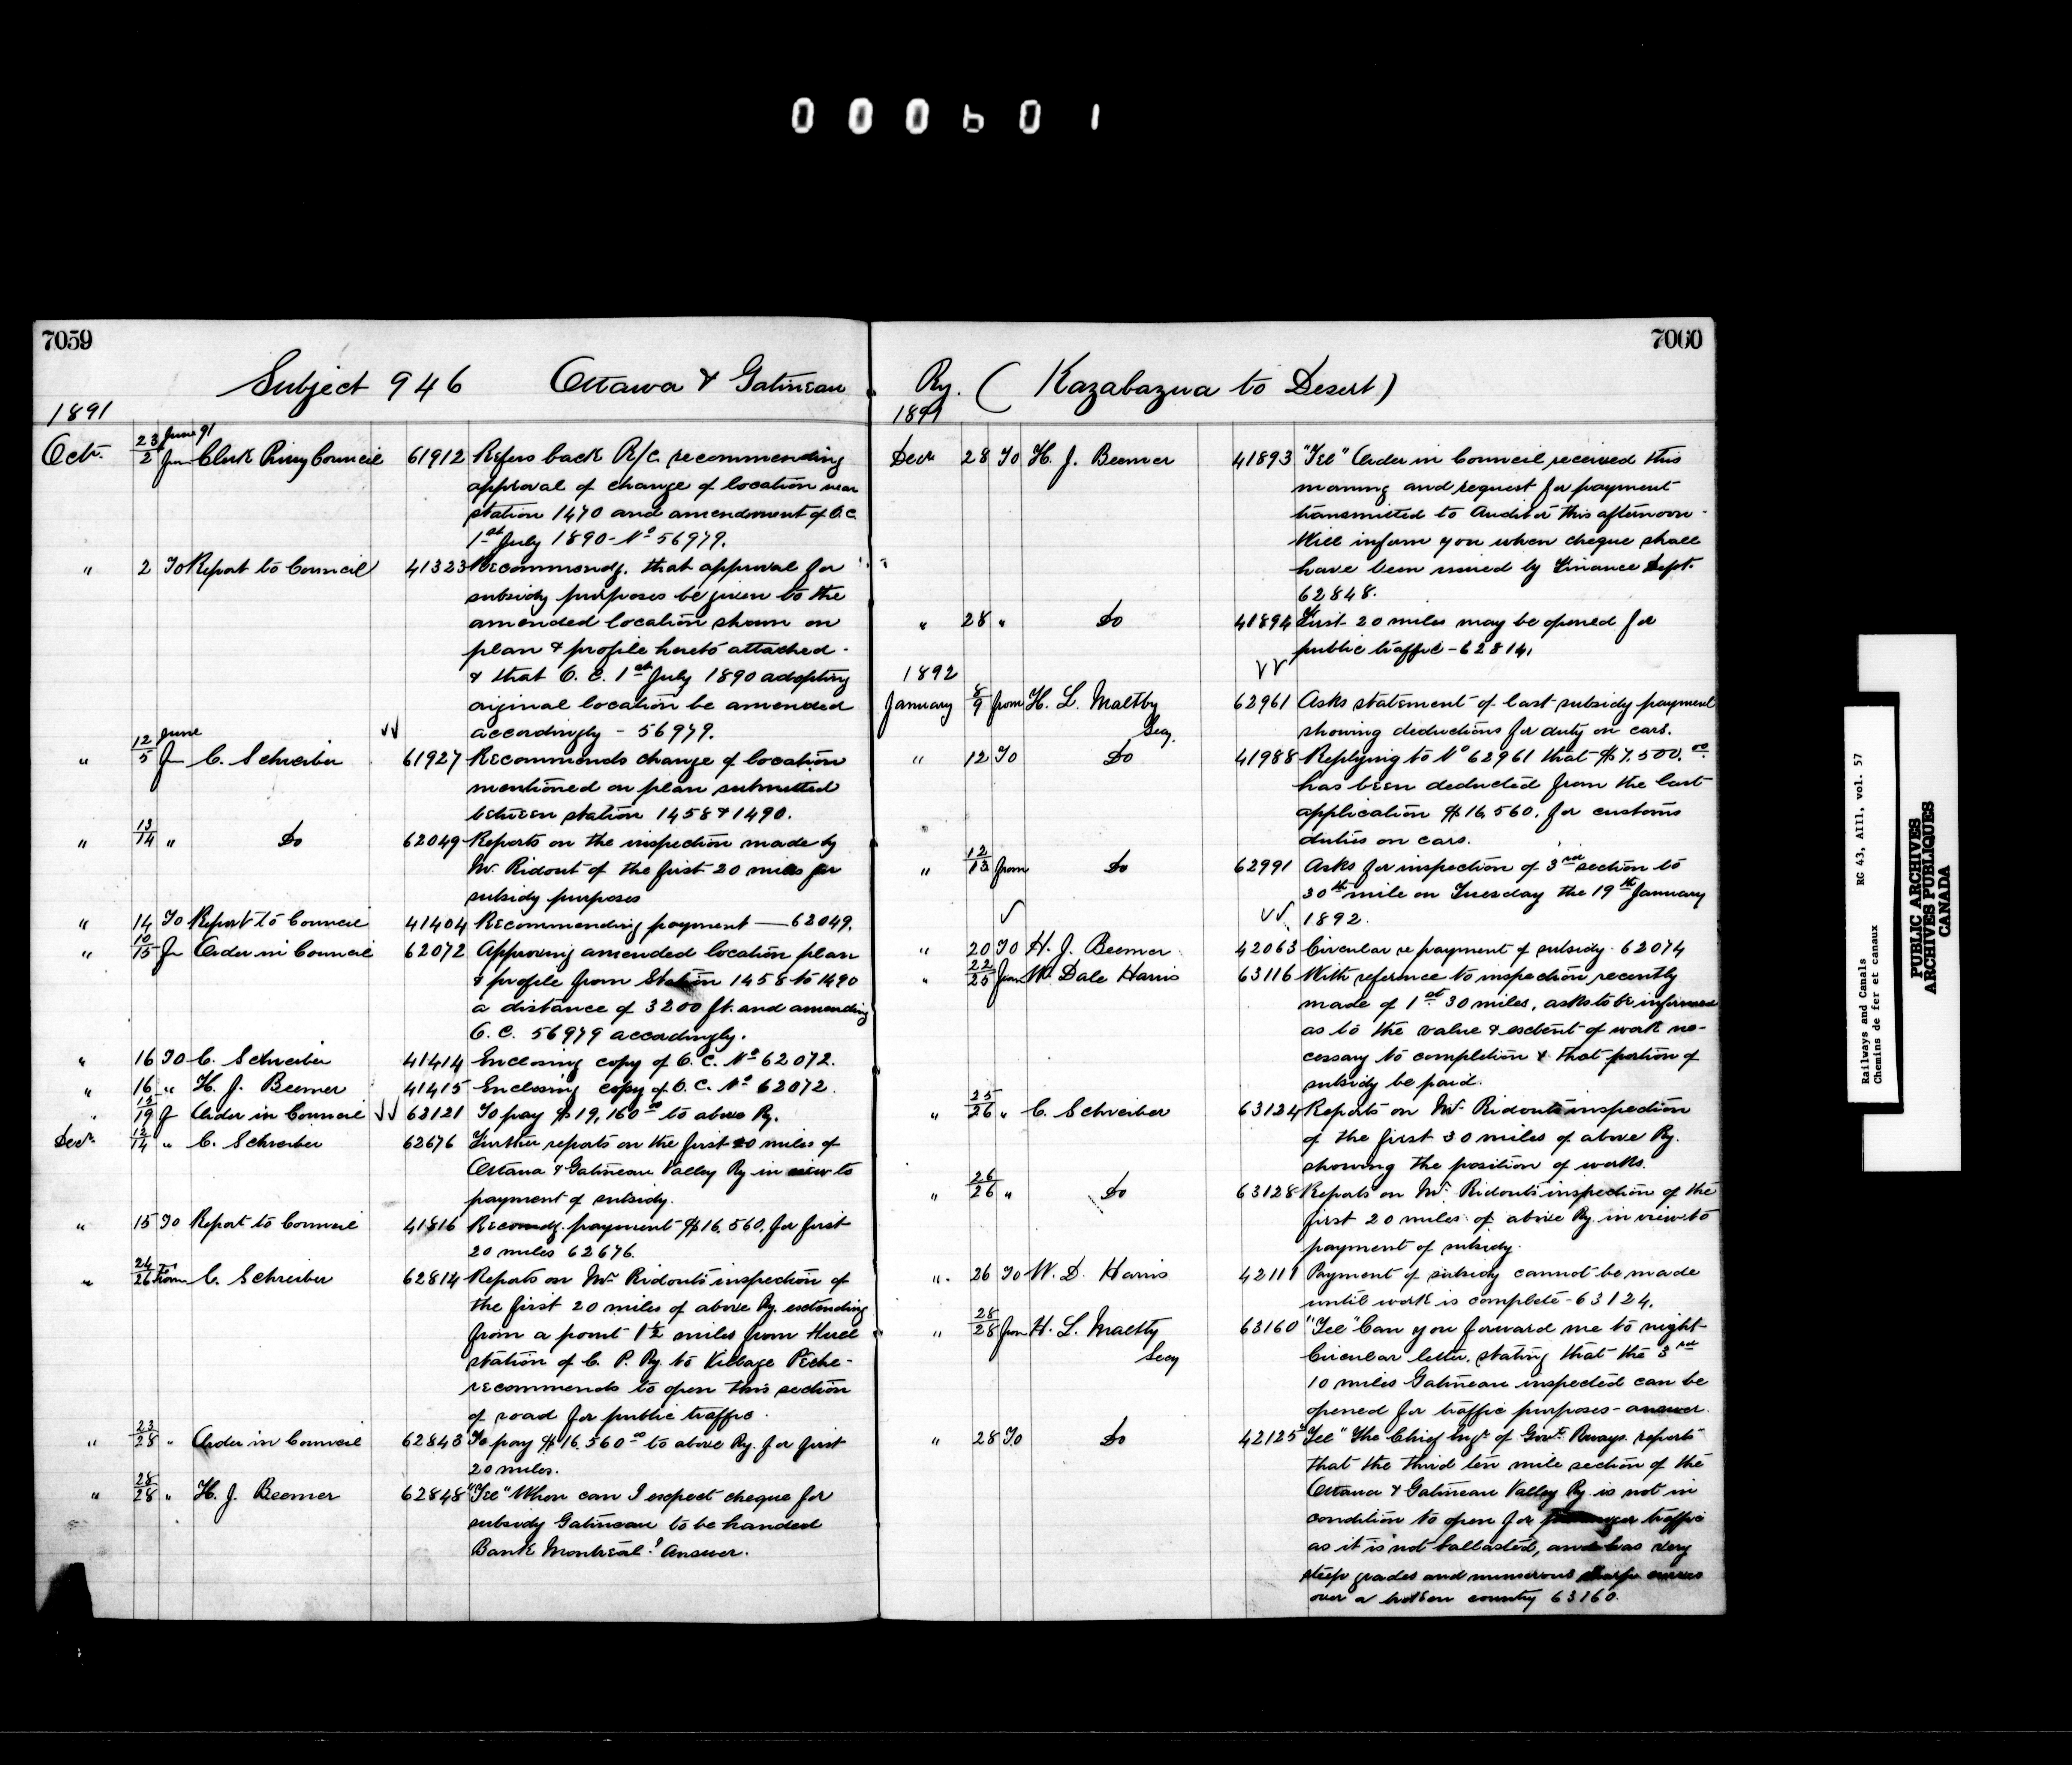 000601
7059
Subject 946 Ottawa & Gatineau
1891
Octr. 23/2 June 91 fm Clerk Privy Council 61912 Refers back R/C. recommending
approval of change of location near
station 1470 and amendment of O.C.
1st July 1890 - No 56979.
" 2 To Report to Council 41323 Recommendg. that approval for
subsidy purposes be given to the
amended location shown on
plan & profile hereto attached -
& that O. C. 1st July 1890 adopting
original location be amended
accordingly - 56979.
" 12/5 June fm C. Schreiber 61927 Recommends change of location
mentioned on plan submitted
between station 1458 & 1490.
" 13/14 " Do 62049 Reports on the inspection made by
Mr. Ridout of the first 20 miles for
subsidy purposes
" 14 To Report to Council 41404 Recommending payment — 62049.
" 10/15 fm Order in Council 62072 Approving amended location plan
& profile from Station 1458 to 1490
a distance of 3200 ft. and amending
O. C. 56979 accordingly.
" 16 To C. Schreiber 41414 Enclosing copy of O. C. No 62072.
" 16 " H. J. Beemer 41415 Enclosing copy of O. C. No 62072.
" 15/19 f Order in Council 62121 To pay $19,160.00 to above Ry.
Decr. 12/14 " C. Schreiber 62676 Further reports on the first 20 miles of
Ottawa & Gatineau Valley Ry in view to
payment of subsidy.
" 15 To Report to Council 41816 Recomdg. payment $16,560. for first
20 miles 62676.
" 24/26 From C. Schreiber 62814 Reports on Mr. Ridout's inspection of
the first 20 miles of above Ry. extending
from a point 1½ miles from Hull
station of C. P. Ry. to Village Pêche -
recommends to open this section
of road for public traffic.
" 23/28 " Order in Council 62843 To pay $16,560.00 to above Ry. for first
20 miles.
" 28/28 " H. J. Beemer 62848 "Tel" When can I expect cheque for
subsidy Gatineau to be handed
Bank Montreal? Answer.
7060
Ry. (Kazabazua to Desert)
1891
Decr 28 To H. J. Beemer 41893 "Tel" Order in Council received this
morning and request for payment
transmitted to Auditor this afternoon -
Will inform you when cheque shall
have been issued by Finance Dept.
62848.
" 28 " Do 41894 First 20 miles may be opened for
public traffic - 62814.
1892
January 8/9 from H. L. Maltby 62961 Asks statement of last subsidy payment
Secy. showing deductions for duty on cars.
" 12 To Do 41988 Replying to No 62961 that $7,500.00
has been deducted from the last
application $16,560. for customs
duties on cars.
" 12/13 from Do 62991 Asks for inspection of 3rd section to
30th mile on Tuesday the 19th January
1892.
" 20 To H. J. Beemer 42063 Circular re payment of subsidy. 62074
" 22/25 from Wm Dale Harris 63116 With reference to inspection recently
made of 1st 30 miles, asks to be informed
as to the value & extent of work ne-
cessary to completion & that portion of
subsidy be paid.
" 25/26 " C. Schreiber 63124 Reports on Mr. Ridout's inspection
of the first 30 miles of above Ry.
showing the position of works.
" 26/26 " Do 63128 Reports on Mr. Ridout's inspection of the
first 20 miles of above Ry. in view to
payment of subsidy.
". 26 To W. D. Harris 42111 Payment of subsidy cannot be made
until work is complete - 63124.
" 28/28 from H. L. Maltby 63160 "Tel" Can you forward me to night
Secy Circular letter, stating that the 3rd
10 miles Gatineau inspected can be
opened for traffic purposes - answer.
" 28 To Do 42125 "Tel" The Chief Engr. of Govt. Rways. reports
that the third ten mile section of the
Ottawa & Gatineau Valley Ry. is not in
condition to open for passenger traffic
as it is not ballasted, and has very
steep grades and numerous sharp curves
over a broken country 63160.
Railways and Canals RG 43, AIII, vol. 57
Chemins de fer et canaux
PUBLIC ARCHIVES
ARCHIVES PUBLIQUES
CANADA